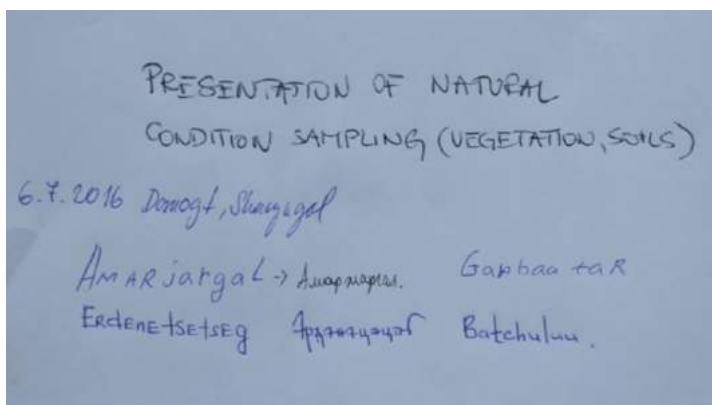 PRESENTATION OF NATURAL
CONDITION SAMPLING (VEGETATION, SOILS)
6.7.2016
AMARjargaL → Амаржаргал. Ganbaa taR
ErdEnEtsEtsEg Batchuluu.